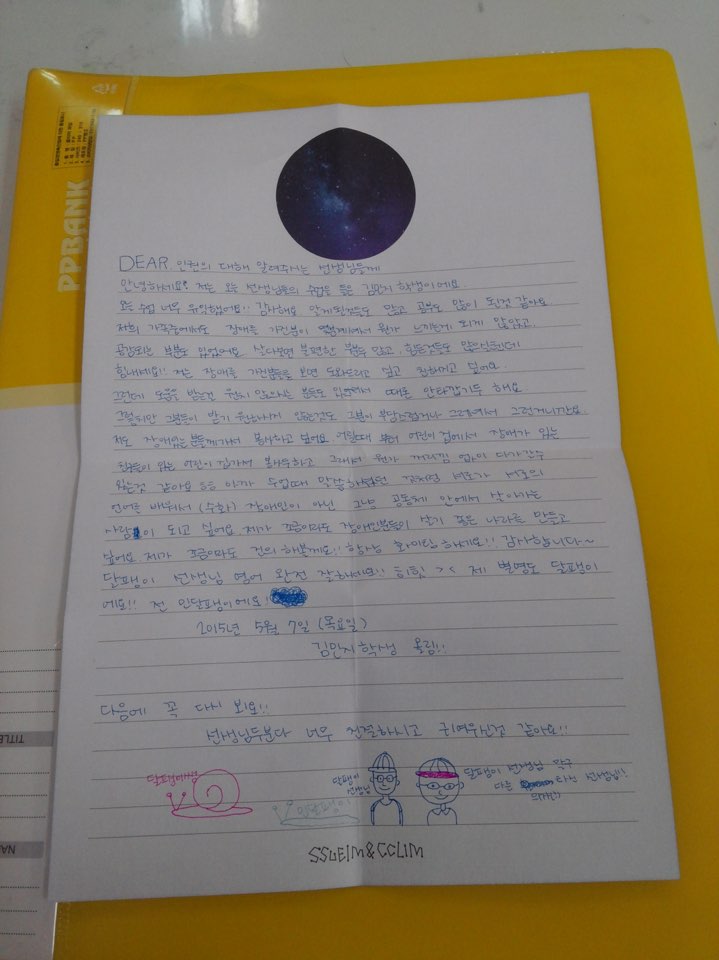 PPBANK
DEAR. 인권의 대해 알려주시는 선생님들께
안녕하세요? 저는 오늘 선생님들의 수업을 들은 김민지 학생이에요.
오늘 수업 너무 유익했어요!! 감사해요 알게된것들도 많고 공부도 많이 된것 같아요
저희 가족중에서도 장애를 가진분이 계셔서 뭔가 느끼는게 되게 많았고.
공감되는 부분도 있었어요 살다보면 불편한 부분도 많고, 힘든것들도 많으실텐데
힘내세요!! 저는 장애를 가진분들을 보면 도와드리고 싶고 친해지고 싶어요.
그런데 도움을 받는걸 원치 않으시는 분들도 있어서 때론 안타깝기도 하여요
그렇지만 그분들이 받기 원하시지 않는것도 그분이 부담스럽거나 그러셔서 그런거니깐요.
저도 장애있는분들께가서 봉사하고 싶어요 어릴때 부터 어린이 집에서 장애가 있는
친구들이 있는 어린이집가서 봉사두하고 그래서 뭔가 거리낌 없이 다가갈수
있는것 같아요 ㅎㅎ 아까 수업때 말씀하셨던 것처럼 서로가 서로의
언어를 배워서 (수화) 장애인이 아닌 그냥 공동체 안에서 살아가는
사람이 되고 싶어요 제가 조금이라도 장애인분들이 살기 좋은 나라를 만들고
싶어요 제가 조금이라도 건의 해볼게요!! 항상 화이팅 하세요!! 감사합니다~
달팽이 선생님 영어 완전 잘하세여!! 히힣 >< 제 별명도 달팽이
에요!! 전 인달팽이에요!
2015년 5월 7일 (목요일)
김민지학생 올림!!
다음에 꼭 다시 뵈요!!
선생님두분다 너무 친절하시고 귀여우신것 같아요!!
달팽이
인달팽이
달팽이
선생님
달팽이 선생님 친구
다른 타신 선생님!
의자
SSUEIM&CCLIM
TITLE
NAM